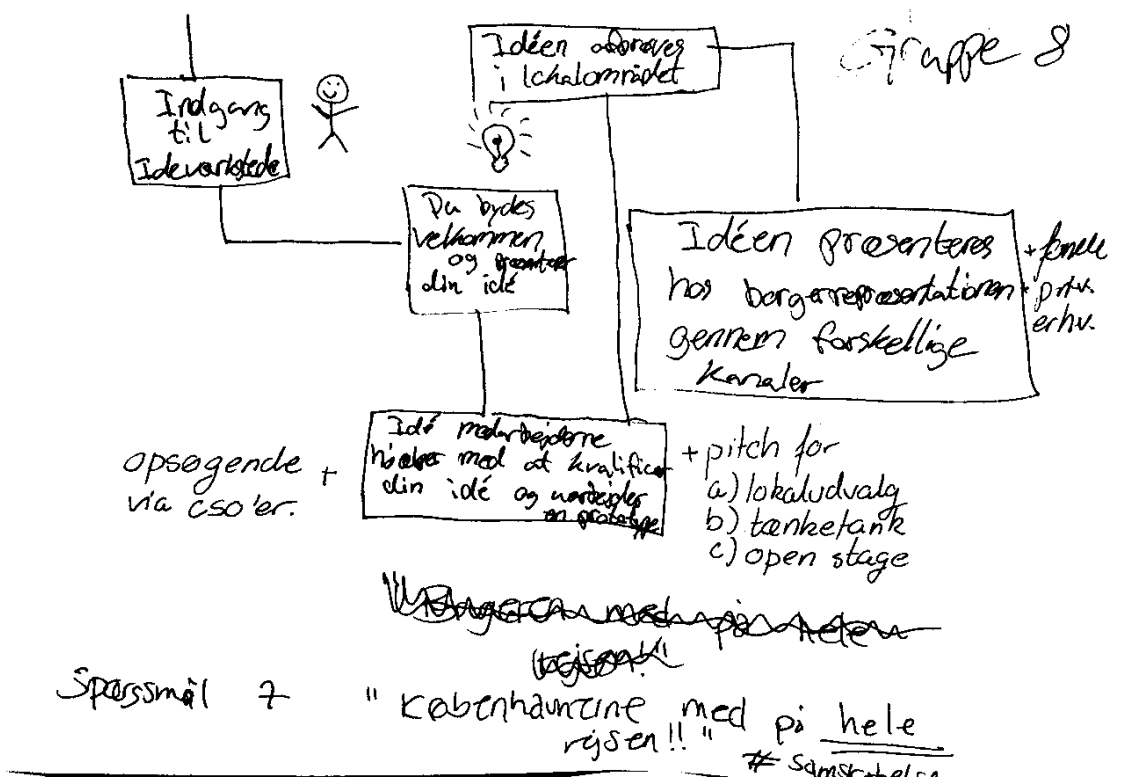 Gruppe 8
Indgang
til
Ideværkstede
Idéen afprøves
i lokalområdet
Du bydes
velkommen
og præsenterer
din idé
Idéen præsenteres
hos borgerrepræsentationen
gennem forskellige
kanaler
+ fonde
+ priv.
erhv.
opsøgende +
via CSO'er.
Idé medarbejderne
hjælper med at kvalificer
din idé og udarbejder
en prototype
+ pitch for
a) lokaludvalg
b) tænketank
c) open stage
"Borgeren med på hele
rejsen!"
Spørgsmål 7
"Københavnerne med på hele
rejsen!!"
# samskabelse